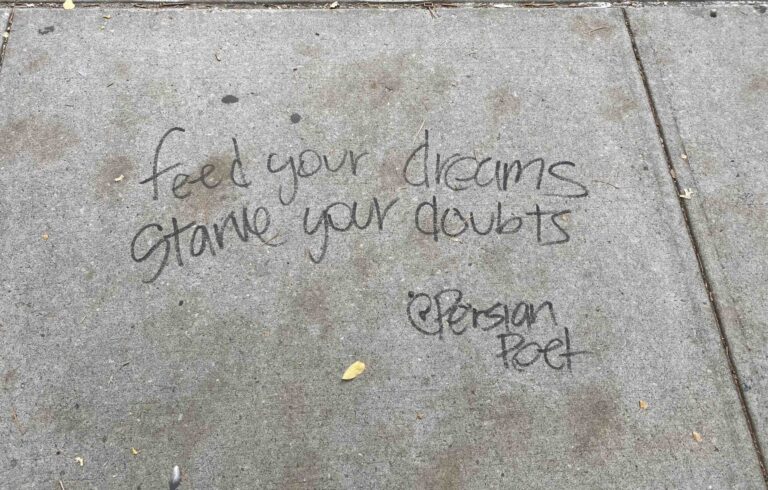 feed your dreams
starve your doubts
@Persian
Poet